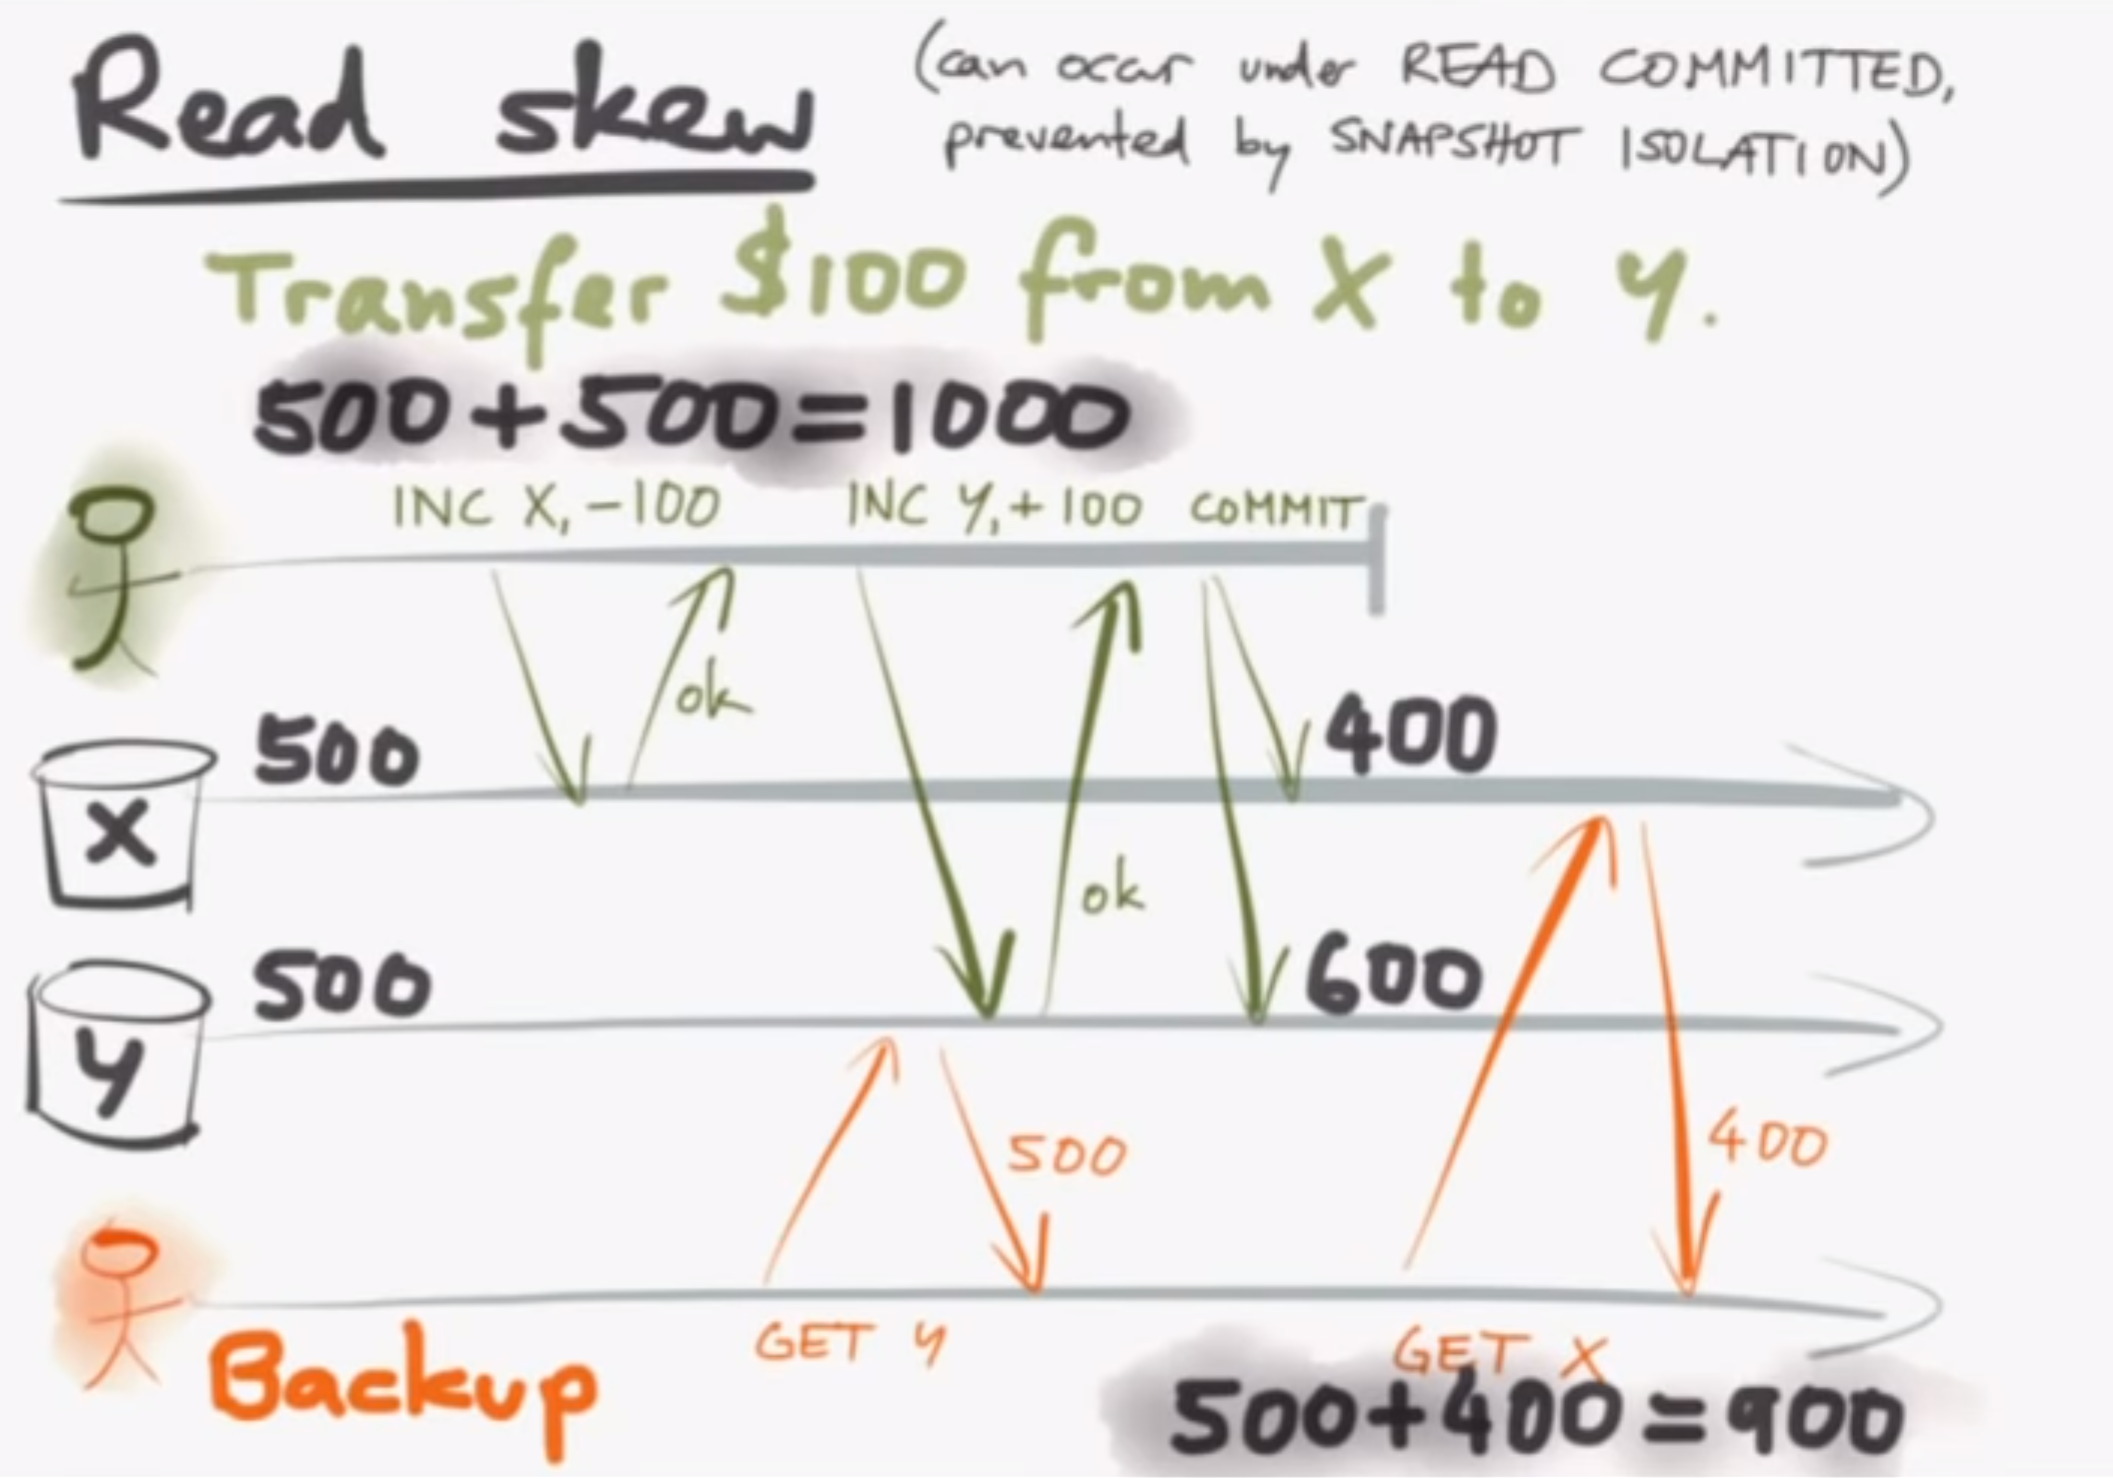 Read skew
(can occur under READ COMMITTED,
prevented by SNAPSHOT ISOLATION)
Transfer $100 from X to Y.
500+500=1000
INC X, -100 INC Y, +100 COMMIT
ok
500 400
X
ok
500 600
Y
500 400
GET Y GET X
Backup
500+400=900